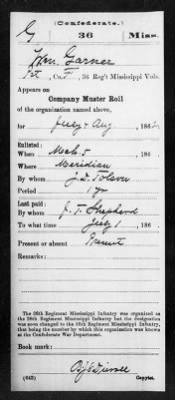 (Confederate.)
G 36 Miss.
Wm. Garner
Pvt., Co. F, 36 Reg't Mississippi Vols.
Appears on
Company Muster Roll
of the organization named above,
for July & Aug, 1862.
Enlisted:
When Mch 5, 186
Where Meridian
By whom J. D. Tolson
Period 1 yr
Last paid:
By whom J. T. Shepherd
To what time July 1, 186
Present or absent Present
Remarks:
The 36th Regiment Mississippi Infantry was organized as
the Regiment Mississippi Infantry but the designation
was soon changed to the 36th Regiment Mississippi Infantry,
that being the number by which it was known at the
Confederate War Department.
Book mark:
(642) Copyist.